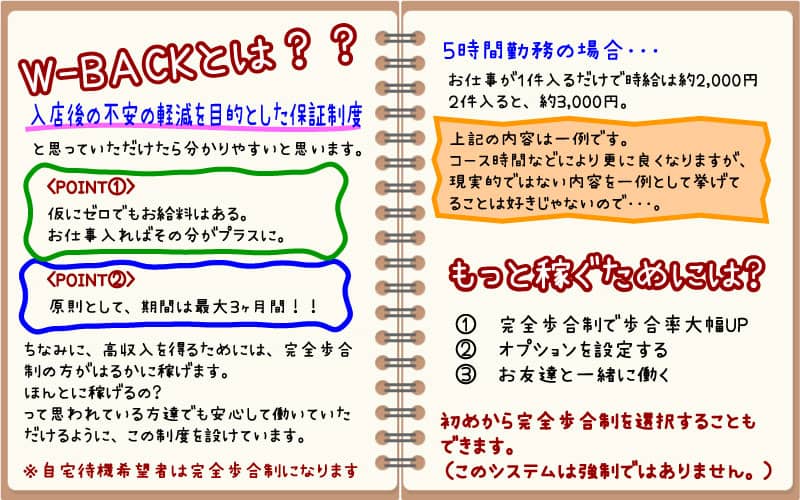 W-BACKとは？？
入店後の不安の軽減を目的とした保証制度
と思っていただけたら分かりやすいと思います。
<POINT①>
仮にゼロでもお給料はある。
お仕事入ればその分がプラスに。
<POINT②>
原則として、期間は最大3ヶ月間！！
ちなみに、高収入を得るためには、完全歩合
制の方がはるかに稼げます。
ほんとに稼げるの?
って思われている方達でも安心して働いていた
だけるように、この制度を設けています。
※自宅待機希望者は完全歩合制になります
5時間勤務の場合・・・
お仕事が1件入るだけで時給は約2,000円
2件入ると、約3,000円。
上記の内容は一例です。
コース時間などにより更に良くなりますが、
現実的ではない内容を一例として挙げて
ることは好きじゃないので・・・。
もっと稼ぐためには?
① 完全歩合制で歩合率大幅UP
② オプションを設定する
③ お友達と一緒に働く
初めから完全歩合制を選択することも
できます。
(このシステムは強制ではありません。)